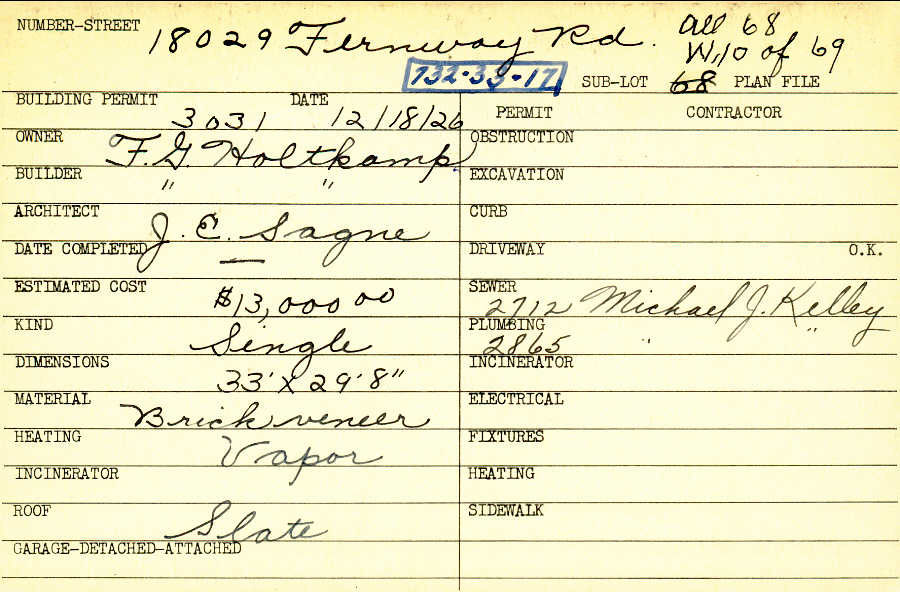 NUMBER-STREET 18029 Fernway Rd. all 68
W.10 of 69
732-33-17 SUB-LOT 68 PLAN FILE
BUILDING PERMIT 3031 DATE 12/18/26 PERMIT CONTRACTOR
OWNER F. G. Holtkamp OBSTRUCTION
BUILDER " " EXCAVATION
ARCHITECT J. E. Sagne CURB
DATE COMPLETED — DRIVEWAY O.K.
ESTIMATED COST $13,000 00 SEWER 2712 Michael J. Kelley
KIND Single PLUMBING 2865 " "
DIMENSIONS 33' X 29'8" INCINERATOR
MATERIAL Brick veneer ELECTRICAL
HEATING Vapor FIXTURES
INCINERATOR HEATING
ROOF Slate SIDEWALK
GARAGE-DETACHED-ATTACHED